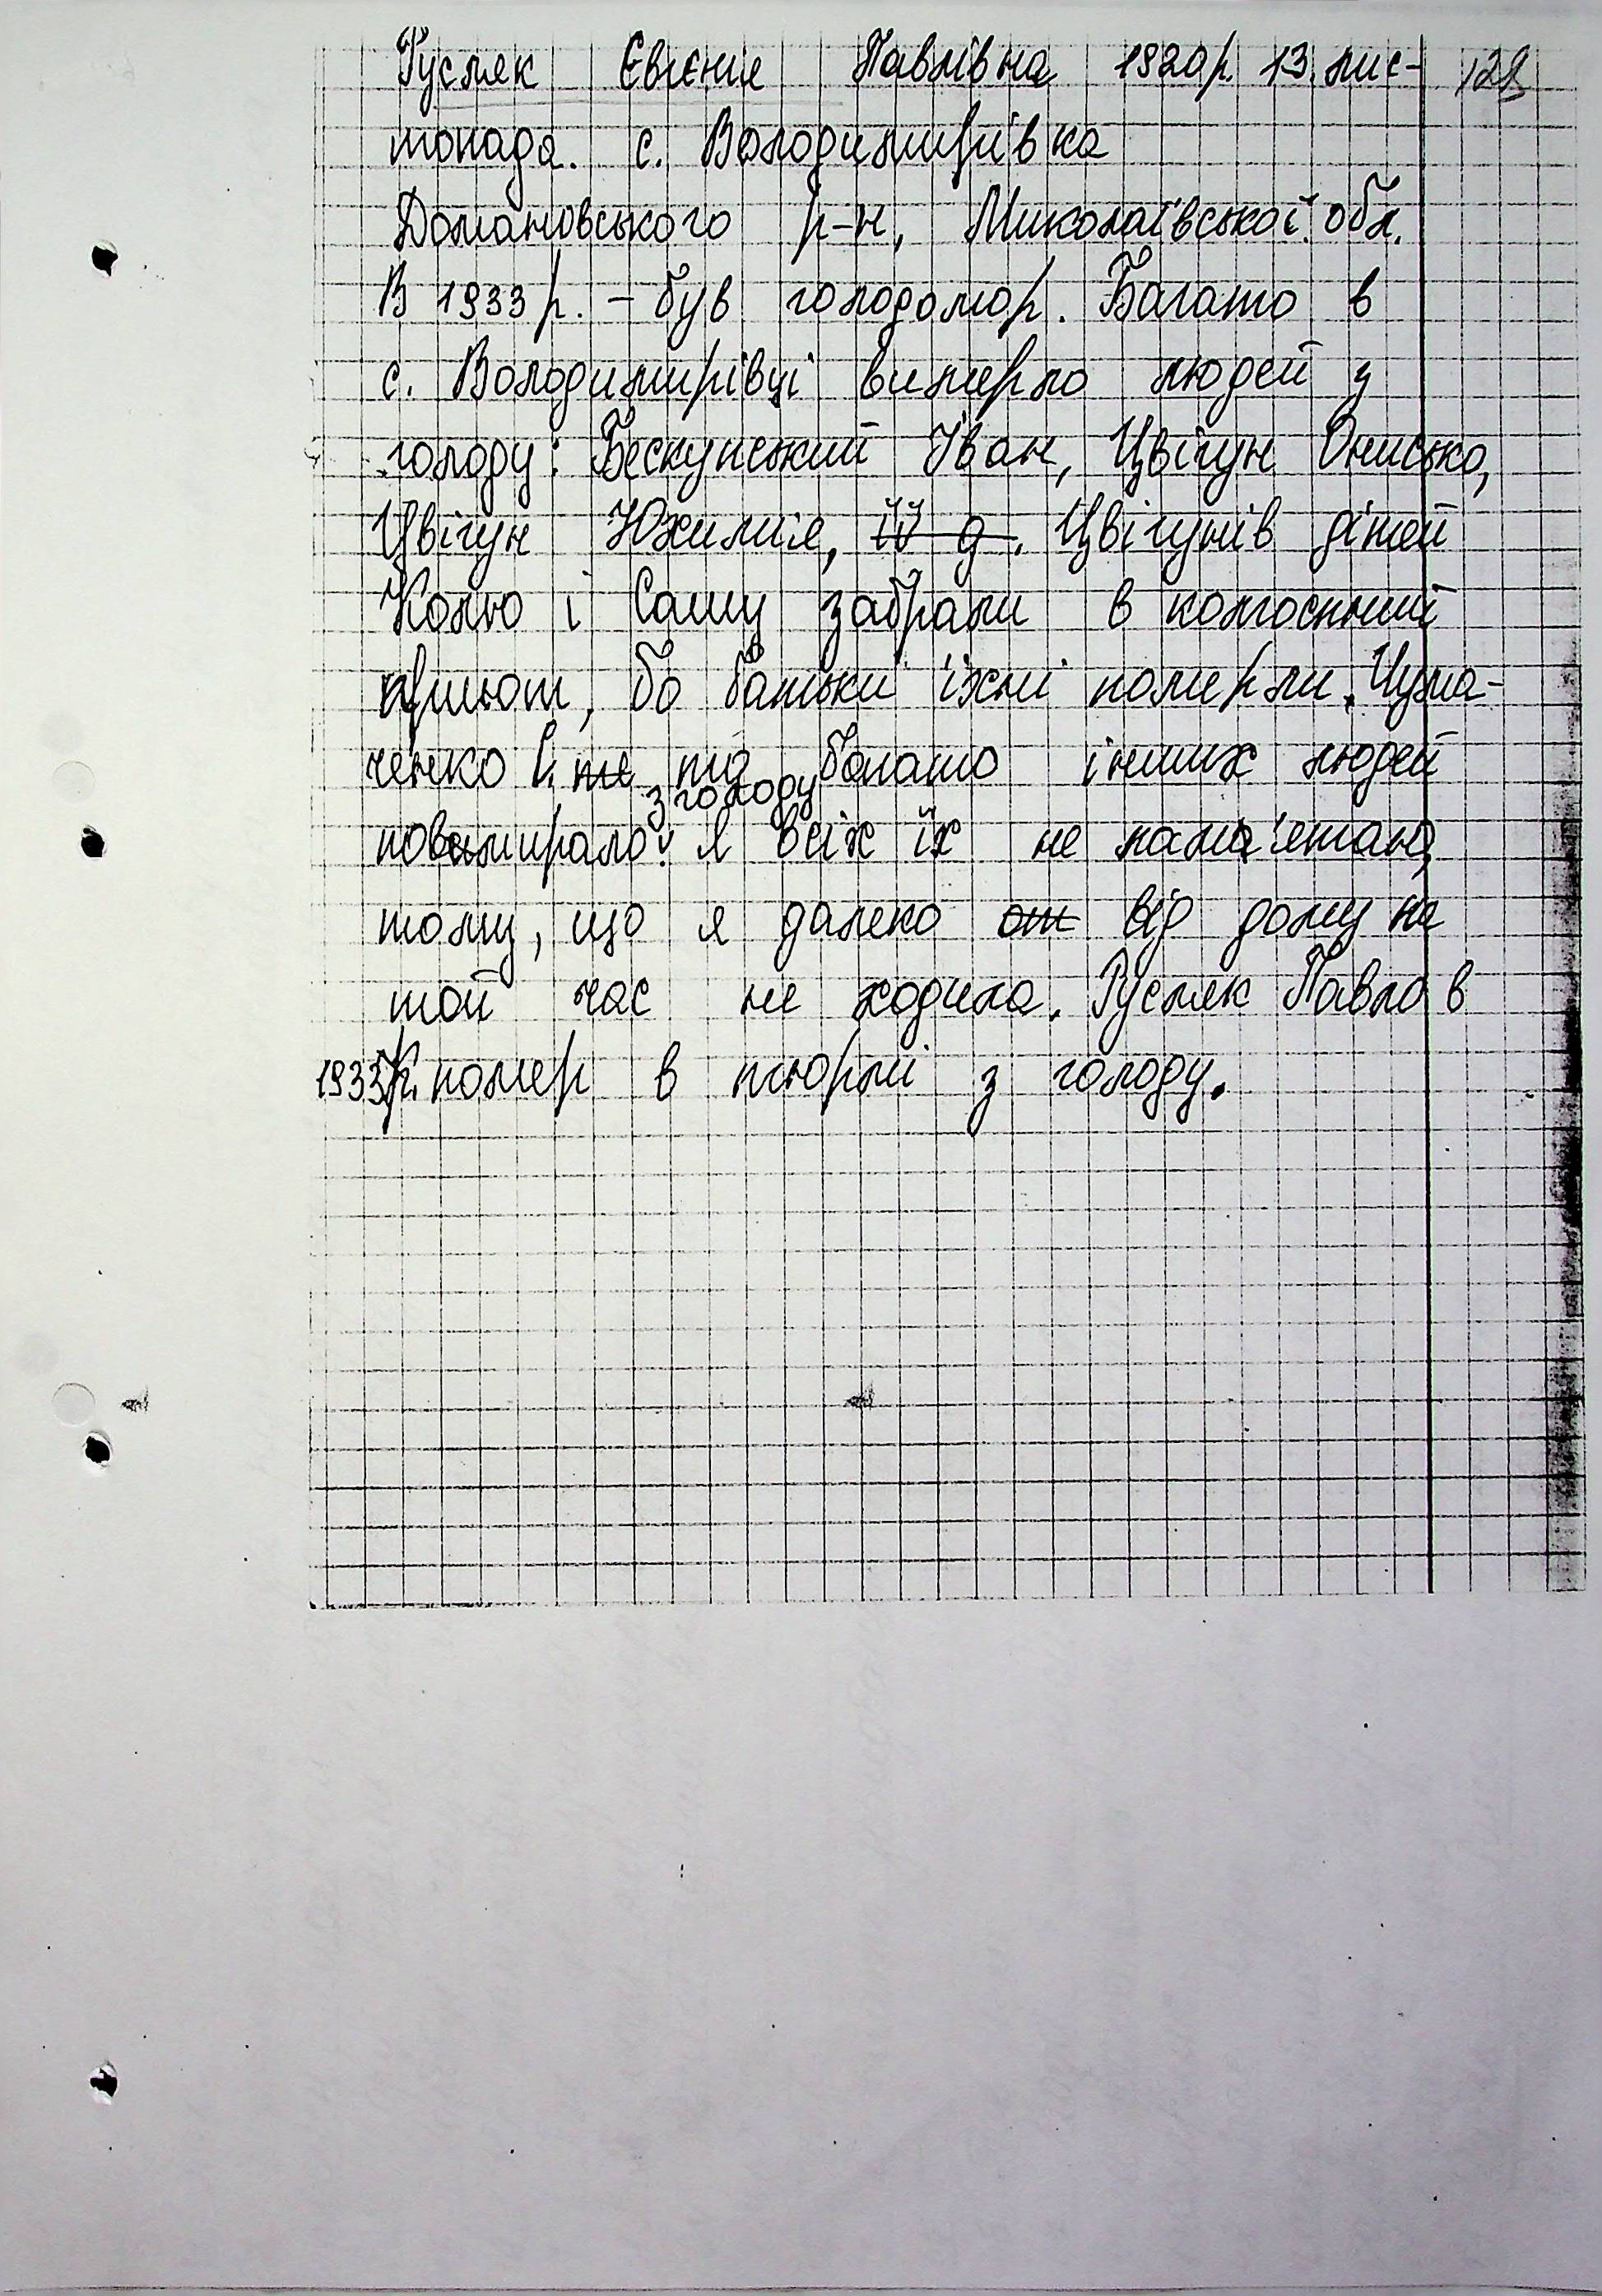 Гусляк Євгенія Павлівна 1920р. 13 лис- 129
топада. с. Володимирівка
Доманівського р-н, Миколаївської обл.
В 1933 р. – був голодомор. Багато в
с. Володимирівці вимерло людей з
голоду: Бескупський Іван, Цвігун Онисько,
Цвігун Юхимія, її д. Цвігунів дітей
Колю і Сашу забрали в колгоспний
приют, бо батьки їхні померли. Чума-
ченко І. те під багато інших людей
з голоду
повимирало. Я всіх їх не пам'ятаю,
тому, що я далеко от від дому на
той час не ходила. Гусляк Павло в
1933р. помер в тюрмі з голоду.